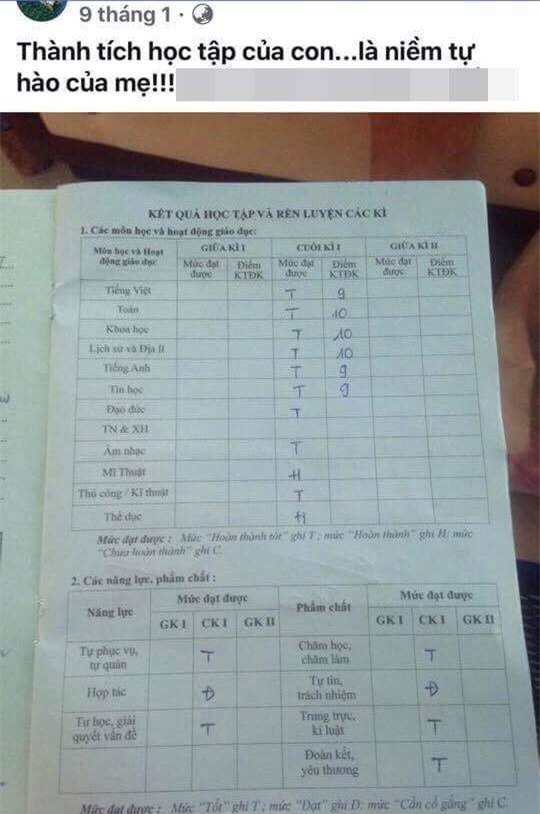 9 tháng 1 ·
Thành tích học tập của con...là niềm tự
hào của mẹ!!!
KẾT QUẢ HỌC TẬP VÀ RÈN LUYỆN CÁC KÌ
1. Các môn học và hoạt động giáo dục:
Môn học và Hoạt động giáo dục GIỮA KÌ I CUỐI KÌ I GIỮA KÌ II
Mức đạt được Điểm KTĐK Mức đạt được Điểm KTĐK Mức đạt được Điểm KTĐK
Tiếng Việt T 9
Toán T 10
Khoa học T 10
Lịch sử và Địa lí T 10
Tiếng Anh T 9
Tin học T 9
Đạo đức T
TN & XH
Âm nhạc T
Mĩ Thuật H
Thủ công / Kĩ thuật T
Thể dục H
Mức đạt được : Mức "Hoàn thành tốt" ghi T ; mức "Hoàn thành" ghi H: mức
"Chưa hoàn thành" ghi C.
2. Các năng lực, phẩm chất :
Năng lực Mức đạt được Phẩm chất Mức đạt được
GK I CK I GK II GK I CK I GK II
Tự phục vụ, tự quản T Chăm học, chăm làm T
Hợp tác Đ Tự tin, trách nhiệm Đ
Tự học, giải quyết vấn đề T Trung trực, kỉ luật T
Đoàn kết, yêu thương T
Mức đạt được : Mức "Tốt" ghi T ; mức "Đạt" ghi D: mức "Cần cố gắng" ghi C.